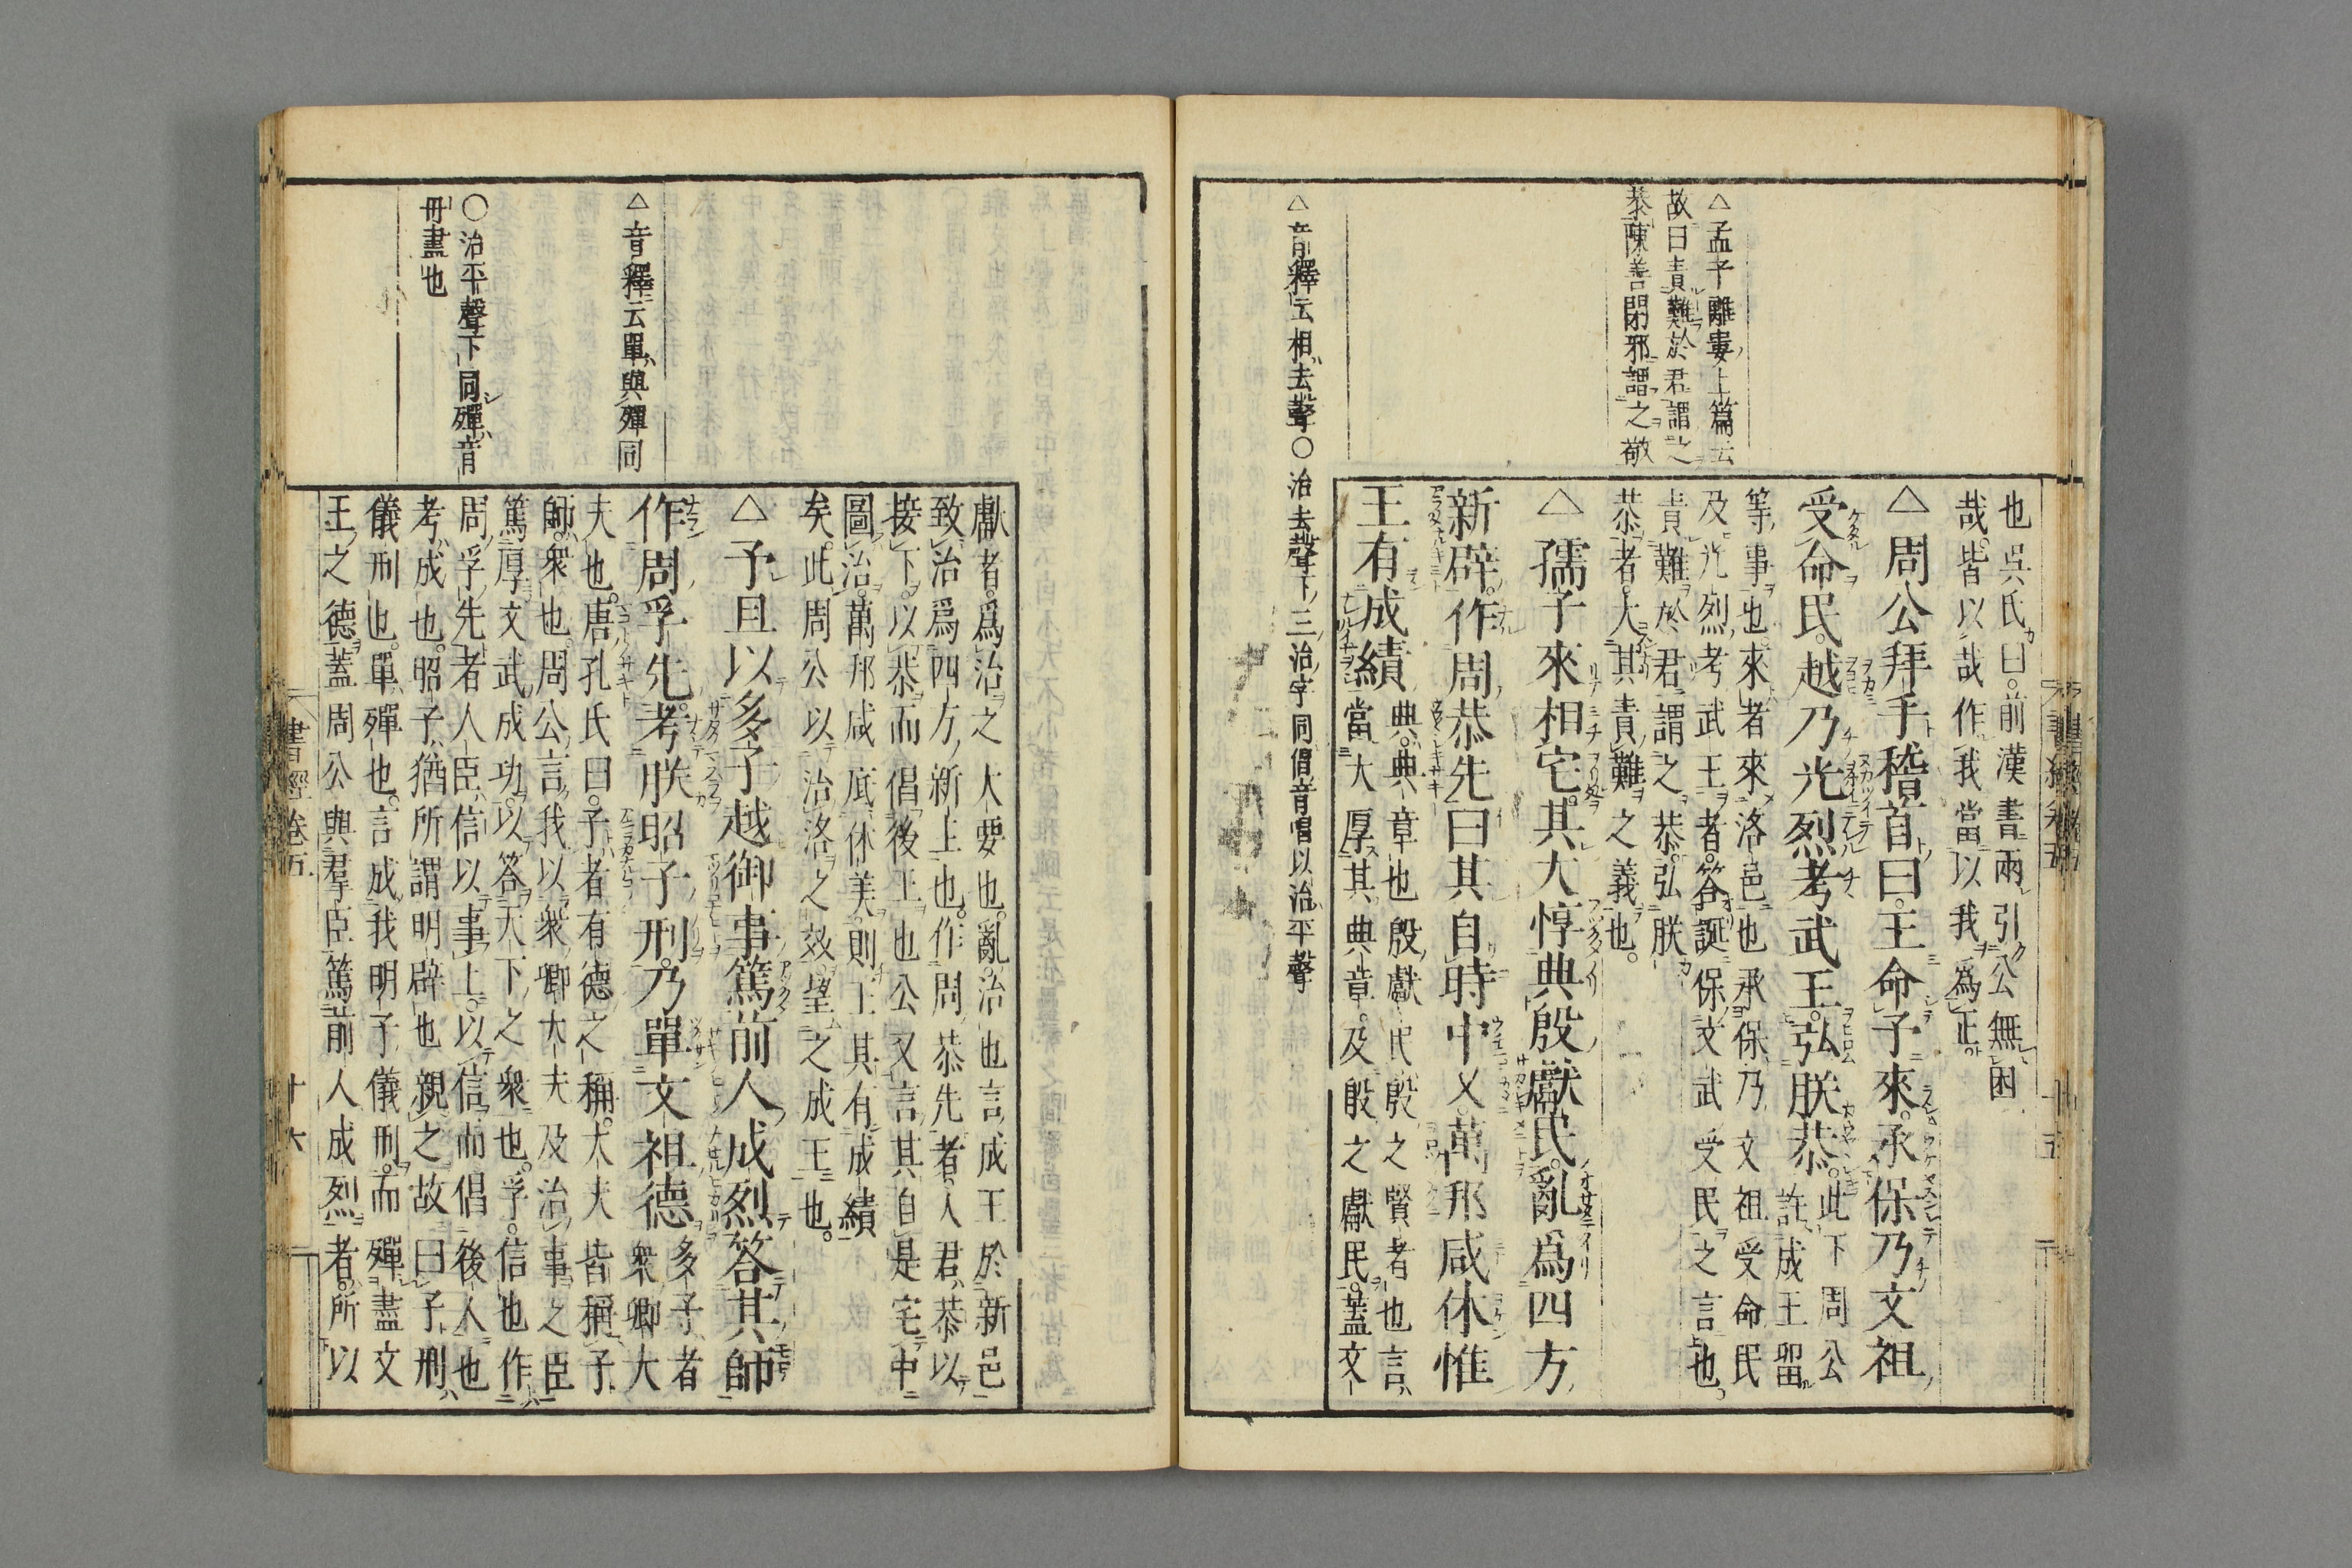 也呉氏曰前漢書兩引公無困
哉皆以哉作我當以我為正
△周公拜手稽首曰王命予來承保乃文祖
受命民越乃光烈考武王弘朕恭此下周公
許成王留
等事也來者來洛邑也承保乃文祖受命民
及光烈考武王者答誕保文武受民之言也
責難於君謂之恭弘朕
恭者大其責難之義也
△孺子來相宅其大惇典殷獻民亂爲四方
新辟作周恭先曰其自時中乂萬邦咸休惟
王有成績典典章也殷獻民殷之賢者也言
當大厚其典章及殷之獻民蓋文
△孟子離婁上篇云
故曰責難於君謂之
恭陳善閉邪謂之敬
△音釋云相去聲○治去聲下三治字同倡音唱以治平聲
書經卷五
十五
獻者爲治之大要也亂治也言成王於新邑
致治爲四方新上也作周恭先者人君恭以
接下以恭而倡後王也公又言其自是宅中
圖治萬邦咸底休美則王其有成績
矣此周公以治洛之效望之成王也
△予旦以多子越御事篤前人成烈答其師
作周孚先考朕昭子刑乃單文祖德多子者
衆卿大
夫也唐孔氏曰子者有德之稱大夫皆稱子
師衆也周公言我以衆卿大夫及治事之臣
篤厚文武成功以答天下之衆也孚信也作
周孚先者人臣信以事上以信而倡後人也
考成也昭子猶所謂明辟也親之故曰子刑
儀刑也單殫也言成我明子儀刑而殫盡文
王之德蓋周公與羣臣篤前人成烈者所以
△音釋云單與殫同
○治平聲下同殫音
丹盡也
書經卷五
十六